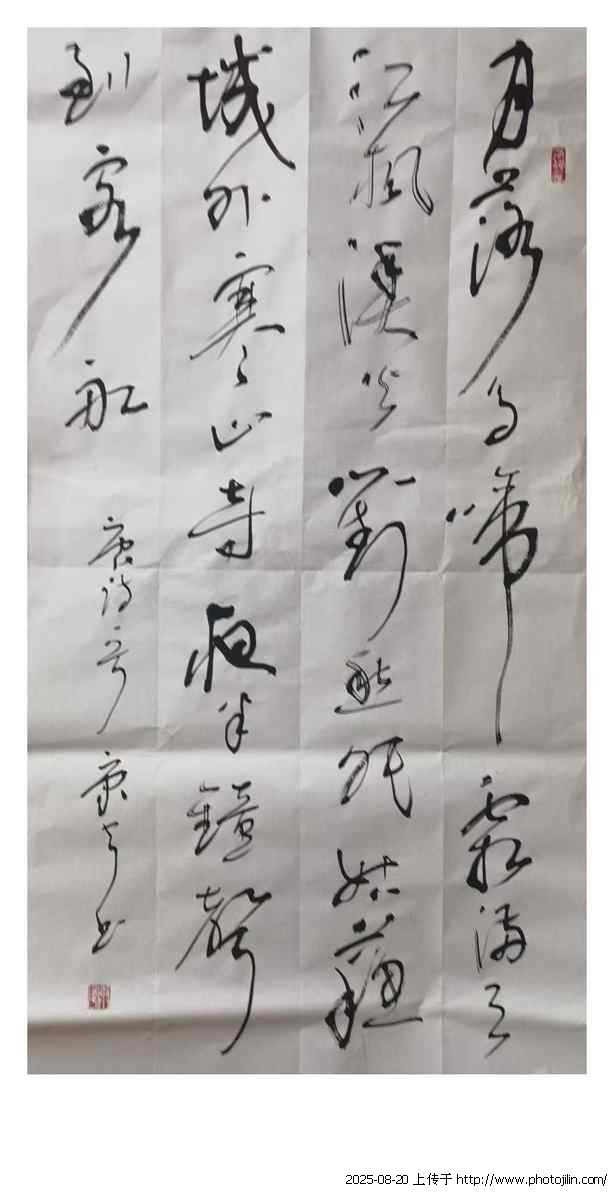 月落烏啼霜滿天
江楓漁火對愁眠姑蘇
城外寒山寺夜半鐘聲
到客船
唐詩一首 書
2025-08-20 上传于 http://www.photojilin.com/